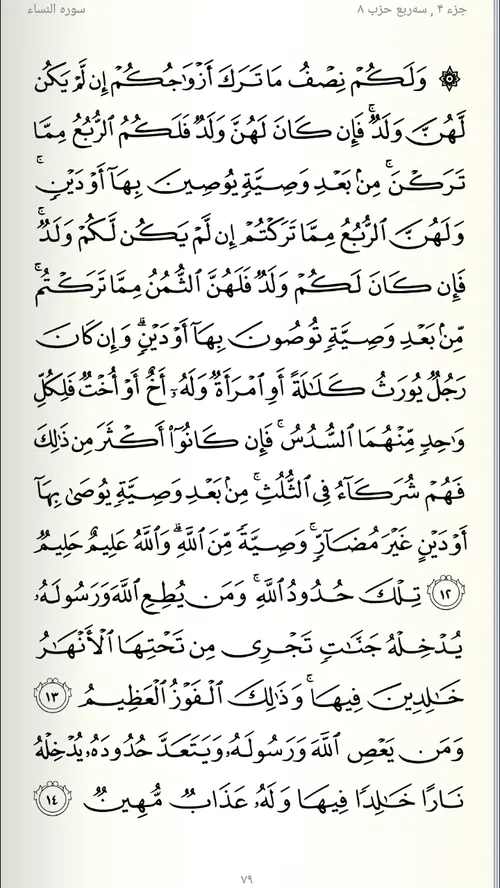 جزء ۴ , سه‌ربع حزب ۸ سوره النساء
۞ وَلَكُمْ نِصْفُ مَا تَرَكَ أَزْوَٰجُكُمْ إِن لَّمْ يَكُن
لَّهُنَّ وَلَدٌ ۚ فَإِن كَانَ لَهُنَّ وَلَدٌ فَلَكُمُ ٱلرُّبُعُ مِمَّا
تَرَكْنَ ۚ مِنۢ بَعْدِ وَصِيَّةٍ يُوصِينَ بِهَآ أَوْ دَيْنٍ ۚ
وَلَهُنَّ ٱلرُّبُعُ مِمَّا تَرَكْتُمْ إِن لَّمْ يَكُن لَّكُمْ وَلَدٌ ۚ
فَإِن كَانَ لَكُمْ وَلَدٌ فَلَهُنَّ ٱلثُّمُنُ مِمَّا تَرَكْتُم ۚ
مِّنۢ بَعْدِ وَصِيَّةٍ تُوصُونَ بِهَآ أَوْ دَيْنٍ ۗ وَإِن كَانَ
رَجُلٌ يُورَثُ كَلَـٰلَةً أَوِ ٱمْرَأَةٌ وَلَهُۥٓ أَخٌ أَوْ أُخْتٌ فَلِكُلِّ
وَٰحِدٍ مِّنْهُمَا ٱلسُّدُسُ ۚ فَإِن كَانُوٓا۟ أَكْثَرَ مِن ذَٰلِكَ
فَهُمْ شُرَكَآءُ فِى ٱلثُّلُثِ ۚ مِنۢ بَعْدِ وَصِيَّةٍ يُوصَىٰ بِهَآ
أَوْ دَيْنٍ غَيْرَ مُضَآرٍّ ۚ وَصِيَّةً مِّنَ ٱللَّهِ ۗ وَٱللَّهُ عَلِيمٌ حَلِيمٌ
١٢ تِلْكَ حُدُودُ ٱللَّهِ ۚ وَمَن يُطِعِ ٱللَّهَ وَرَسُولَهُۥ
يُدْخِلْهُ جَنَّـٰتٍ تَجْرِى مِن تَحْتِهَا ٱلْأَنْهَـٰرُ
خَـٰلِدِينَ فِيهَا ۚ وَذَٰلِكَ ٱلْفَوْزُ ٱلْعَظِيمُ ١٣
وَمَن يَعْصِ ٱللَّهَ وَرَسُولَهُۥ وَيَتَعَدَّ حُدُودَهُۥ يُدْخِلْهُ
نَارًا خَـٰلِدًا فِيهَا وَلَهُۥ عَذَابٌ مُّهِينٌ ١٤
٧٩